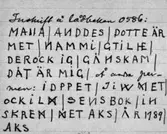 Inskrift å ladbecken 0586:
MAHA|ANDDES|DOTTE ÄR
MET|NAMMI|GTILHE|
DEROCK IG|GÄNSKAM|
DÄT ÄR MIG| å andre par-
men: I DPPET|I W MET
OCKILX|ØENSBOK|IN
SKREM|NET AKS|ÅR 1781
AKS